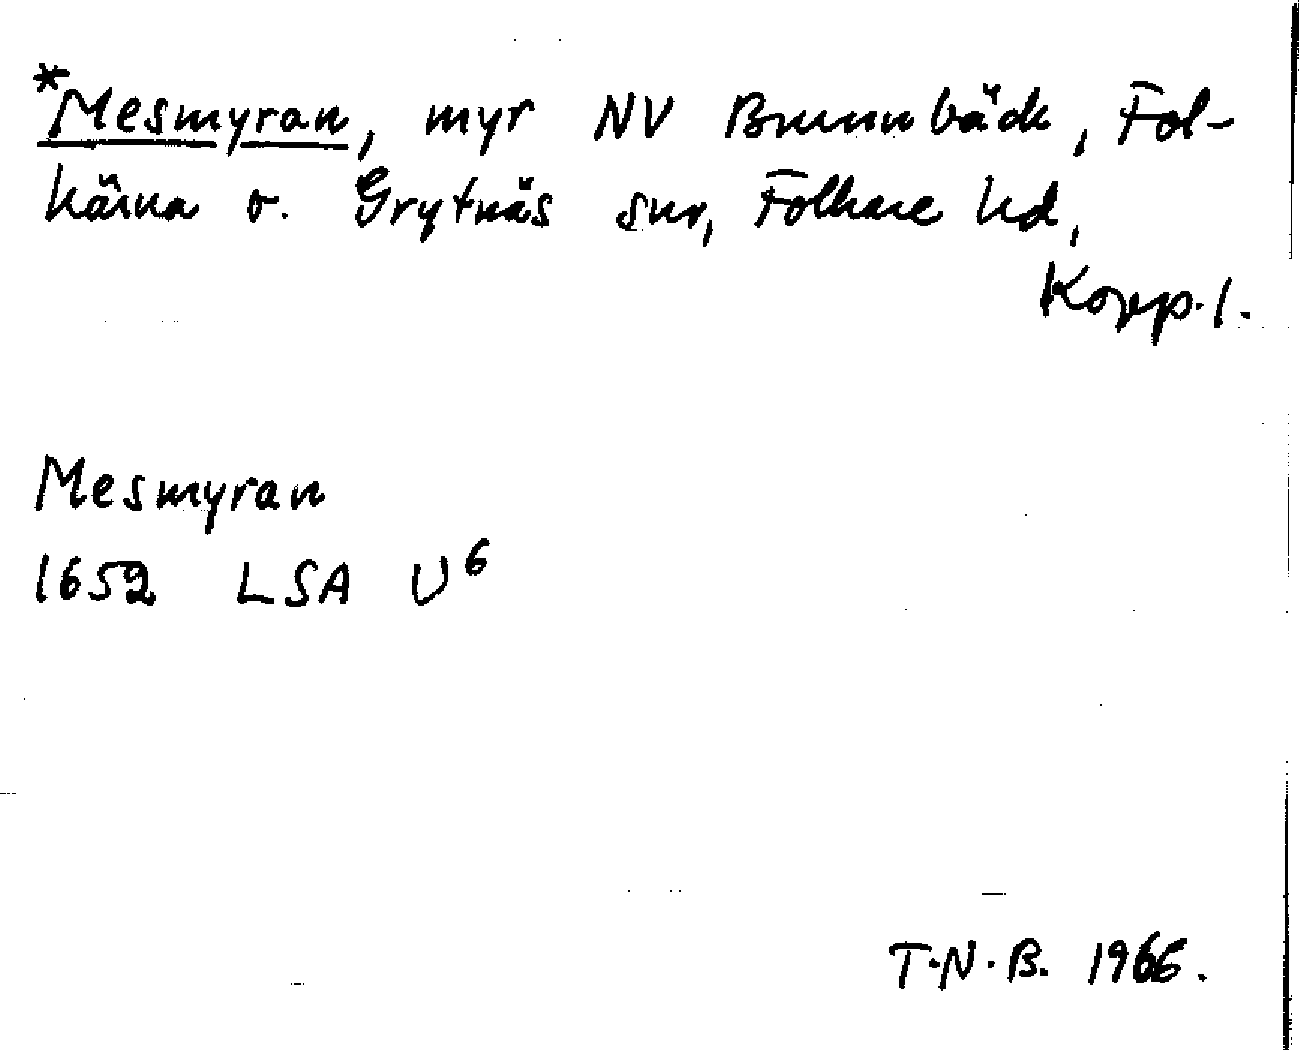 *Mesmyran, myr NV Brunnbäck, Fol-
kärna o. Grytnäs snr, Folkare hd,
Kopp. l.
Mesmyran
1652 LSA U⁶
T.N.B. 1966.